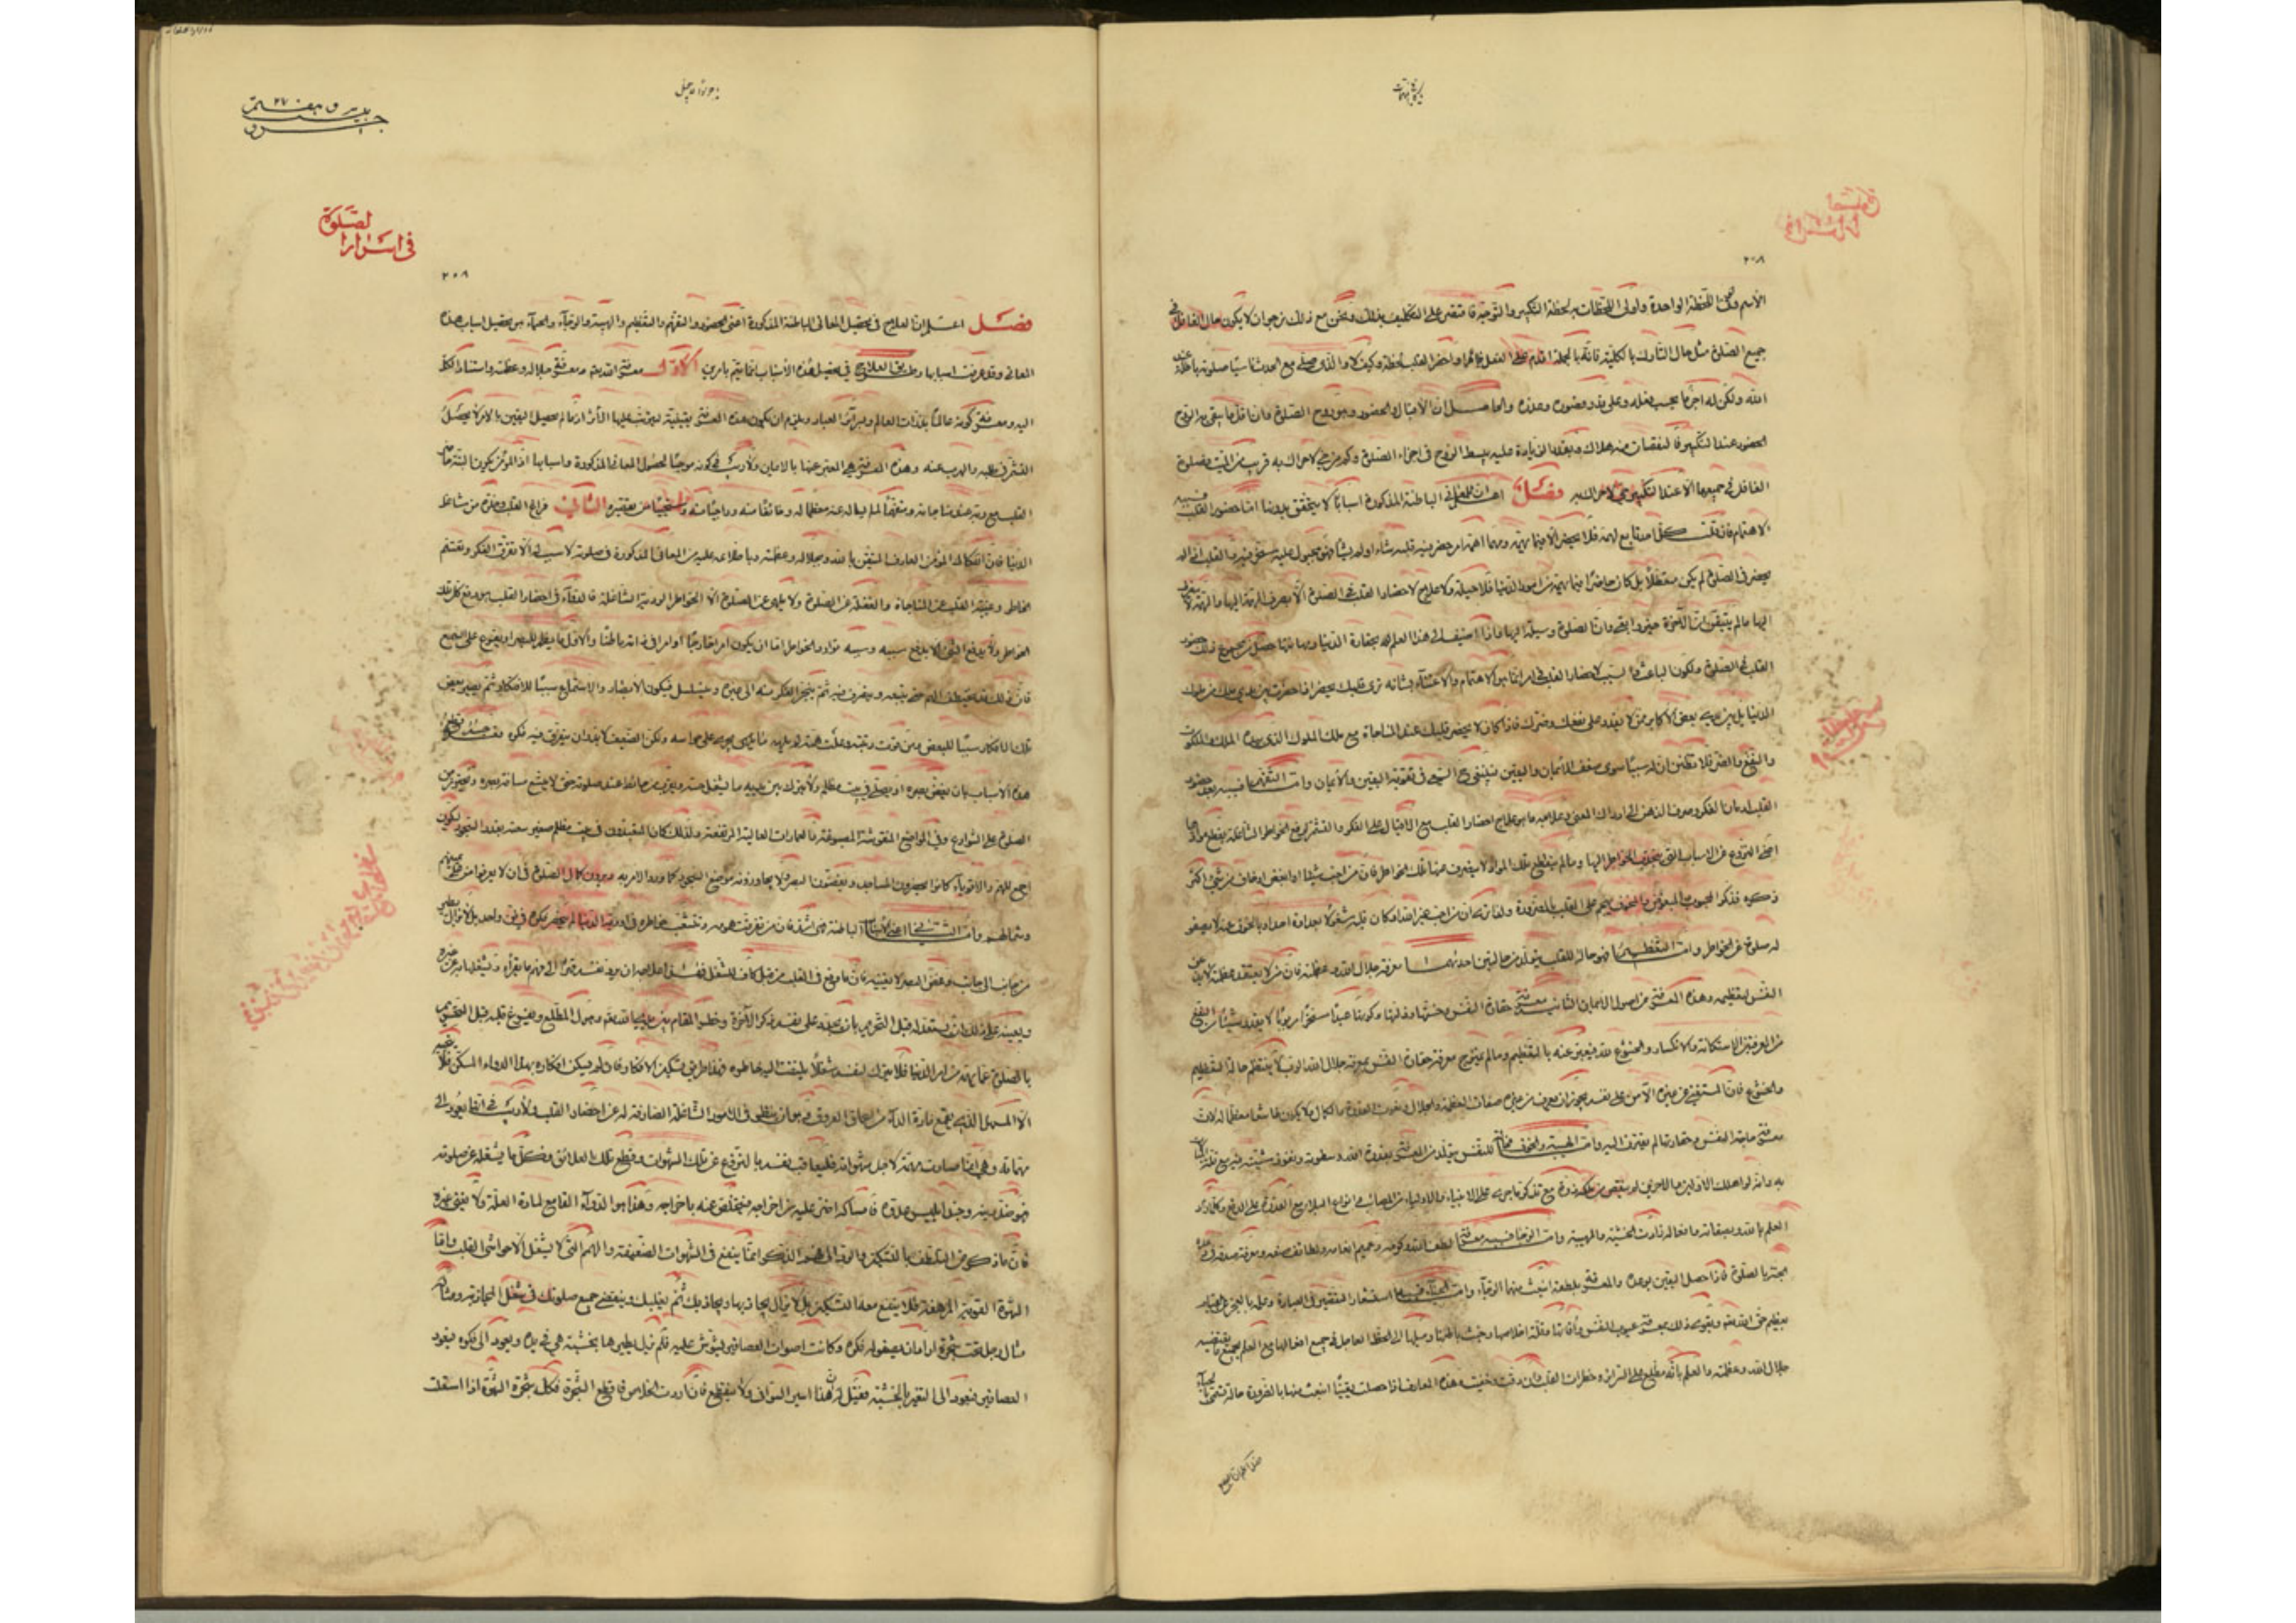 ٢٠٨
الاسم وفي اللحظة الواحدة واولى اللحظات به لحظة التكبير والتوجه فاقتصر على التكليف بذلك ونحن مع ذلك نرجوان لا يكون حال الغافل في
جميع الصلوة مثل حال التارك بالكلية فانه بالجملة اقدم على الفعل ظاهرا واحضر القلب لحظة وكيف لا والذى صلى مع الحدث ناسيا صلوته باطلة عند
الله ولكن له اجر ما بحسب فعله وعلى قدر قصوره وعذره والحاصل ان الاقبال والحضور وهو روح الصلوة وان اقل ما يبقى به الروح
الحضور عند التكبير فالنقصان منه هلاك وبقدر الزيادة عليه ينبسط الروح في اجزاء الصلوة وكم من حي لا حراك به قريب من الميت فصلوة
الغافل في جميعها الا عند التكبير حي لا حراك به فصل المعاني الباطنة المذكورة اسبابا لا يتحقق بدونها اما حضور القلب فسببه
الاهتمام فان قلبك تابع لهمك فلا يحضر الا فيما يهمك ومهما اهمك امر حضر فيه قلبه شاء اولم يشأ فهو مجبول عليه مسخر فيه والقلب اذا لم
يحضر في الصلوة لم يكن متعطلا بل كان حاضرا فيما يهمه من امور الدنيا فلا حيلة ولا علاج لاحضار القلب في الصلوة الا بصرف الهمة اليها والهمة لا
اليها مالم يتيقن ان الآخرة خير وابقى وان الصلوة وسيلة اليها فاذا اضيف الى هذا العلم بحقارة الدنيا ومهانتها حصل من مجموع ذلك حضور
القلب في الصلوة ولكون الباعث والسبب لاحضار القلب في امر انما هو الاهتمام والاعتناء بشانه ترى قلبك يحضر اذا حضرت بين يدي ملك من ملوك
الدنيا بل بين يدي بعض الاكابر ممن لا يقدر على نفعك وضرك فاذا كان لا يحضر قلبك عند المناجاة مع ملك الملوك الذى بيده الملك والملكوت
والنفع والضر فلا تظنن ان له سببا سوى ضعف الايمان واليقين فينبغي السعي في تقوية اليقين والايمان واما التفهم فسببه بعد حضور
القلب ادمان الفكر وصرف الذهن الى ادراك المعنى وعلاجه ما هو علاج احضار القلب مع الاقبال على الفكر والتشمر لرفع الخواطر الشاغلة بقطع موادها
اعني النزوع عن الاسباب التي ينجذب الخواطر اليها ومالم ينقطع تلك المواد لا ينصرف عنها تلك الخواطر فان من احب شيئا او ابغض او خاف من شئ اكثر
ذكره فذكر المحبوب والمبغوض والمخوف يهجم على القلب بالضرورة ولذا ترى ان من احب غير الله او كان قلبه مشغولا بعداوة احد او بالخوف عنه لا يصفو
له صلوة عن الخواطر واما التعظيم فهو حالة للقلب يتولد من حالتين احديهما معرفة جلال الله وعظمته فان من لا يعتقد عظمته لا يذعن
النفس لتعظيمه وهذه المعرفة من اصول الايمان الثانية معرفة حقارة النفس وخستها وذلتها وكونها عبدا مسخرا مربوبا لا يقدر شيئا من النفع
من المعرفتين الاستكانة والانكسار والخشوع لله فيعبر عنه بالتعظيم ومالم يمتزج معرفة حقارة النفس بمعرفة جلال الله الرب لا ينتظم حالة التعظيم
والخشوع فان المستغني عن غيره الآمن على نفسه يجوز ان يعرف من غيره صفات العظمة والجلال ونعوت القدرة والكمال ولا يكون خاشعا معظما له لان
معرفة حاجة النفس وحقارتها لم تقترن اليه واما الهيبة والخوف فحالة للنفس يتولد من المعرفة بقدرة الله وسطوته ونفوذ مشيته فيه مع قلة المبالات
به وانه لو اهلك الاولين والاخرين لم ينقص من ملكه ذرة مع تذكر ما جرى على الانبياء والاولياء من المصائب وانواع البلاء مع القدرة على الدفع وكلما زاد
العلم بالله وبصفاته وافعاله زادت الخشية والهيبة واما الرجاء فسببه معرفة لطف الله وكرمه وعميم انعامه ولطائف صنعه ومعرفة صدقه في وعده
الجنة بالصلوة فاذا حصل اليقين بوعده والمعرفة بلطفه انبعث منهما الرجاء واما الحياء فسببه استشعار التقصير في العبادة وعلمه بالعجز عن القيام
بتعظيم حق الله تعالى ويقوى ذلك بمعرفة عيوب النفس وآفاتها وقلة اخلاصها وخبث باطنها وميلها الى الحظ العاجل في جميع افعالها مع العلم بجميع ما يقتضيه
جلال الله وعظمته والعلم بانه مطلع على السرائر وخطرات القلب وان دقت وخفيت وهذه المعارف اذا حصلت يقينا انبعث منها بالضرورة حالة تسمى بالحياء
جزو بيست و هفتم ٢٧
في اسرار الصلوة
٢٠٨
فصل اعلم ان العلاج في تحصيل المعاني الباطنة المذكورة اعني الحضور والتفهم والتعظيم والهيبة والرجاء والحياء هو تحصيل اسباب هذه
المعاني وقد عرفت اسبابها وطريق العلاج في تحصيل هذه الاسباب انما يتم بامرين الاول معرفة الله تعالى ومعرفة جلاله وعظمته واستناد الكل
اليه ومعرفة كونه عالما بذرات العالم وبسرائر العباد ويلزم ان يكون هذه المعرفة يقينية ليترتب عليها الاثر اذ مالم يحصل اليقين بالامر لا يحصل
التشمر في طلبه والهرب عنه وهذه المعرفة هي المعبر عنها بالايمان ولا ريب في كونه موجبا لحصول المعاني المذكورة واسبابها اذ المؤمن يكون البتة حاضر
القلب مع ربه عند مناجاته ومتفهما لما يقوله معظما له وخائفا منه وراجيا منه ومستحييا من تقصيره الثاني فراغ القلب وخلوه من مشاغل
الدنيا فان انفكاك المؤمن العارف المتيقن بالله وبجلاله وعظمته وباطلاعه عليه من المعاني المذكورة في صلوته لا سبب له الا تفرق الفكر وتقسم
الخاطر وغيبة القلب عن المناجاة والغفلة عن الصلوة ولا يلهى عن الصلوة الا الخواطر الردية الشاغلة فالدواء في احضار القلب هو دفع تلك
الخواطر ولا يدفع الشئ الا بدفع سببه وسبب توارد الخواطر اما ان يكون امرا خارجا او امرا في ذاته باطنا والاول ما يظهر للبصر او يقرع على السمع
فان ذلك قد يختطف الهم حتى يتبعه ويتصرف فيه ثم ينجر الفكر منه الى غيره ويتسلسل فيكون الابصار والاستماع سببا للافتكار ثم يصير بعض
تلك الافكار سببا للبعض ومن قويت رتبته وعلت همته لم يلهه ما يجرى على حواسه ولكن الضعيف لابد ان يتفرق فيه فكره فعلاجه قطع
هذه الاسباب بان يغض بصره او يصلي في بيت مظلم ولا يترك بين يديه ما يشغل حسه ويقرب من حائط عند صلوته حتى لا يتسع مسافة بصره ويتحرز من
الصلوة على الشوارع وفي المواضع المنقوشة المصبوغة والعمارات العالية المرتفعة ولذلك كان المتعبدون في بيت مظلم صغير سعته بقدر السجود ليكون
اجمع للهم والاقوياء كانوا يحضرون المساجد ويغضون البصر ولا يجاوزونه موضع السجود كما ورد الامر به ويرون كمال الصلوة في ان لا يعرفوا من على يمينهم
وشمالهم واما الثاني اعني الاسباب الباطنة فهي اشد فان من تفرقت همومه وتشعبت خواطره في اودية الدنيا لم ينحصر فكره في فن واحد بل لا يزال يطير
من جانب الى جانب وغض البصر لا يغنيه فان ما وقع في القلب من قبل كاف للشغل فهذا علاجه ان يرد نفسه قهرا الى فهم ما يقرأه ويشغلها به عن غيره
ويعينه على ذلك ان يستعد له قبل التحريم بان يجدد على نفسه ذكر الآخرة وخطر المقام بين يدي الله تعالى وهول المطلع ويفرغ قلبه قبل التحريم
بالصلوة عما يهمه من امر الدنيا فلا يترك لنفسه شغلا يلتفت اليه خاطره فهذا طريق تسكين الافكار فان لم يسكن افكاره بهذا الدواء المسكن فلا ينجيه
الا المسهل الذى يقمع مادة الداء من اعماق العروق وهو ان ينظر في الامور الشاغلة الصارفة له عن احضار القلب ولا ريب في انها يعود الى
مهماته وهي انما صارت مهمة لاجل شهواته فليعاقب نفسه بالنزوع عن تلك الشهوات وقطع تلك العلائق فكل ما يشغله عن صلوته
فهو ضد دينه وجند ابليس عدوه فامساكه اضر عليه من اخراجه فيتخلص عنه باخراجه وهذا هو الدواء القامع لمادة العلة ولا يغني غيره
فان ما ذكر من التلطف بالتسكين والرد الى فهم الذكر انما ينفع في الشهوات الضعيفة والهم الذى لا يشغل الا حواشى القلب واما
الشهوة القوية المرهقة فلا ينفع معها التسكين بل لا يزال يجاذبها ويجاذبك ثم يغلبك وينقضى جميع صلوتك في شغل المجاذبة ومثاله
مثال رجل تحت شجرة اراد ان يصفو له فكره وكانت اصوات العصافير يشوش عليه فلم يزل يطيرها بخشبة هي في يده ويعود الى فكره فيعود
العصافير فيعود الى التنفير بالخشبة فقيل له ان هذا اسير السوانى ولا ينقطع فان اردت الخلاص فاقطع الشجرة فكذلك شجرة الشهوة اذا استعلت